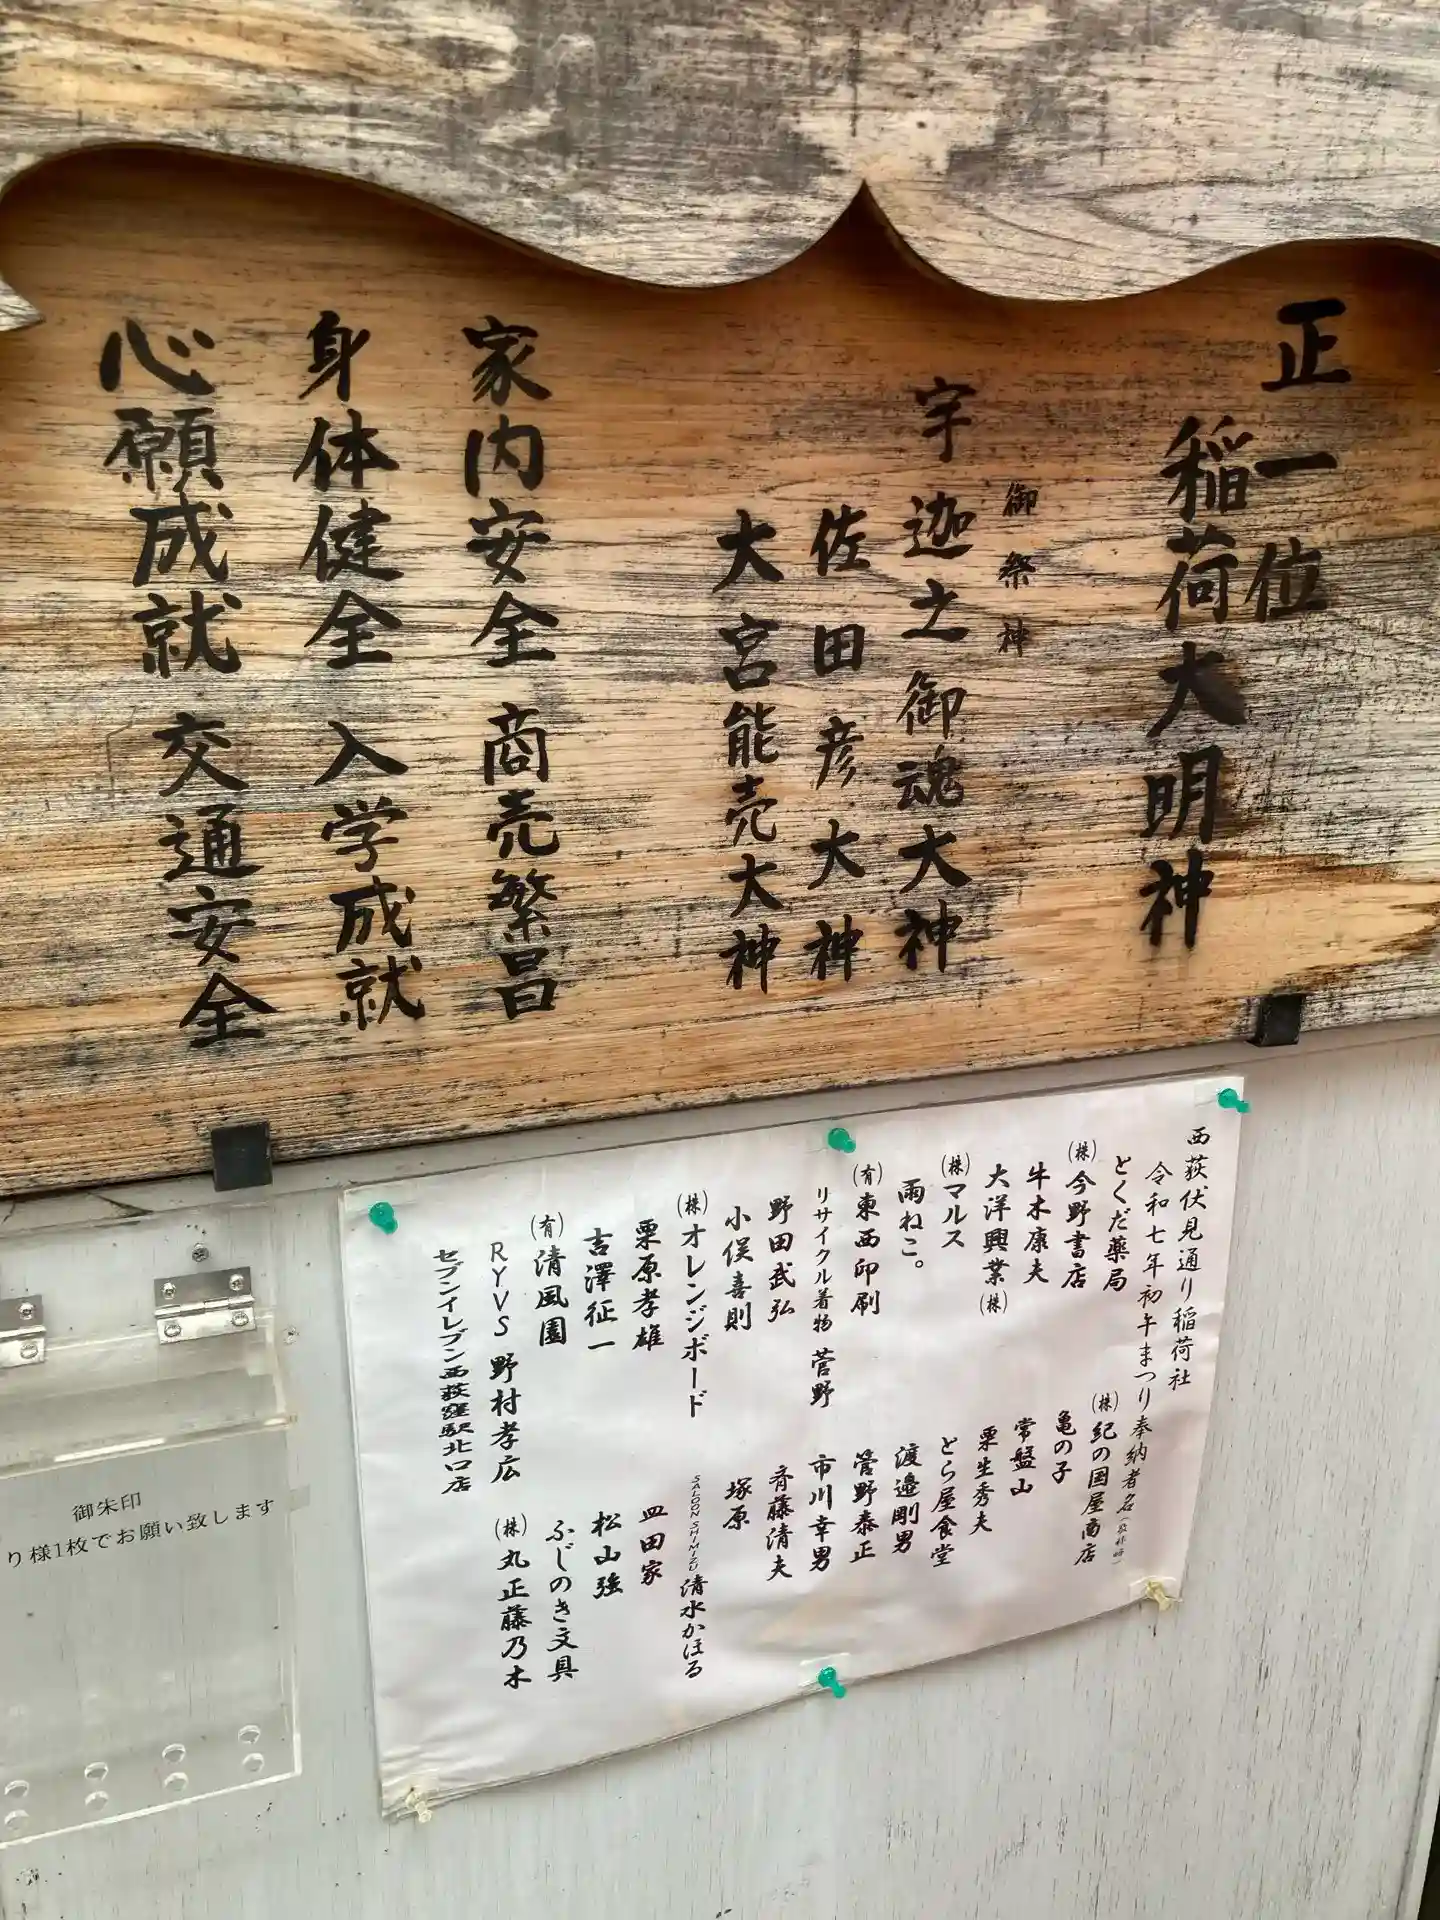 正一位
稲荷大明神
御祭神
宇迦之御魂大神
佐田彦大神
大宮能売大神
家内安全 商売繁昌
身体健全 入学成就
心願成就 交通安全
西荻伏見通り稲荷社
令和七年初午まつり奉納者名
とくだ薬局
㈱紀の国屋商店
㈱今野書店
亀の子
牛木康夫
常盤山
大洋興業㈱
栗生秀夫
㈱マルス
とら屋食堂
雨ねこ。
渡邉剛男
㈲東西印刷
菅野泰正
リサイクル着物 菅野
市川幸男
野田武弘
斉藤清夫
小俣喜則
塚原
㈱オレンジボード
SALOON SHIMIZU 清水かほる
栗原孝雄
皿田家
吉澤征一
松山強
㈲清風園
ふじのき文具
RYVS 野村孝広
㈱丸正藤乃木
セブンイレブン西荻窪駅北口店
御朱印
り様1枚でお願い致します